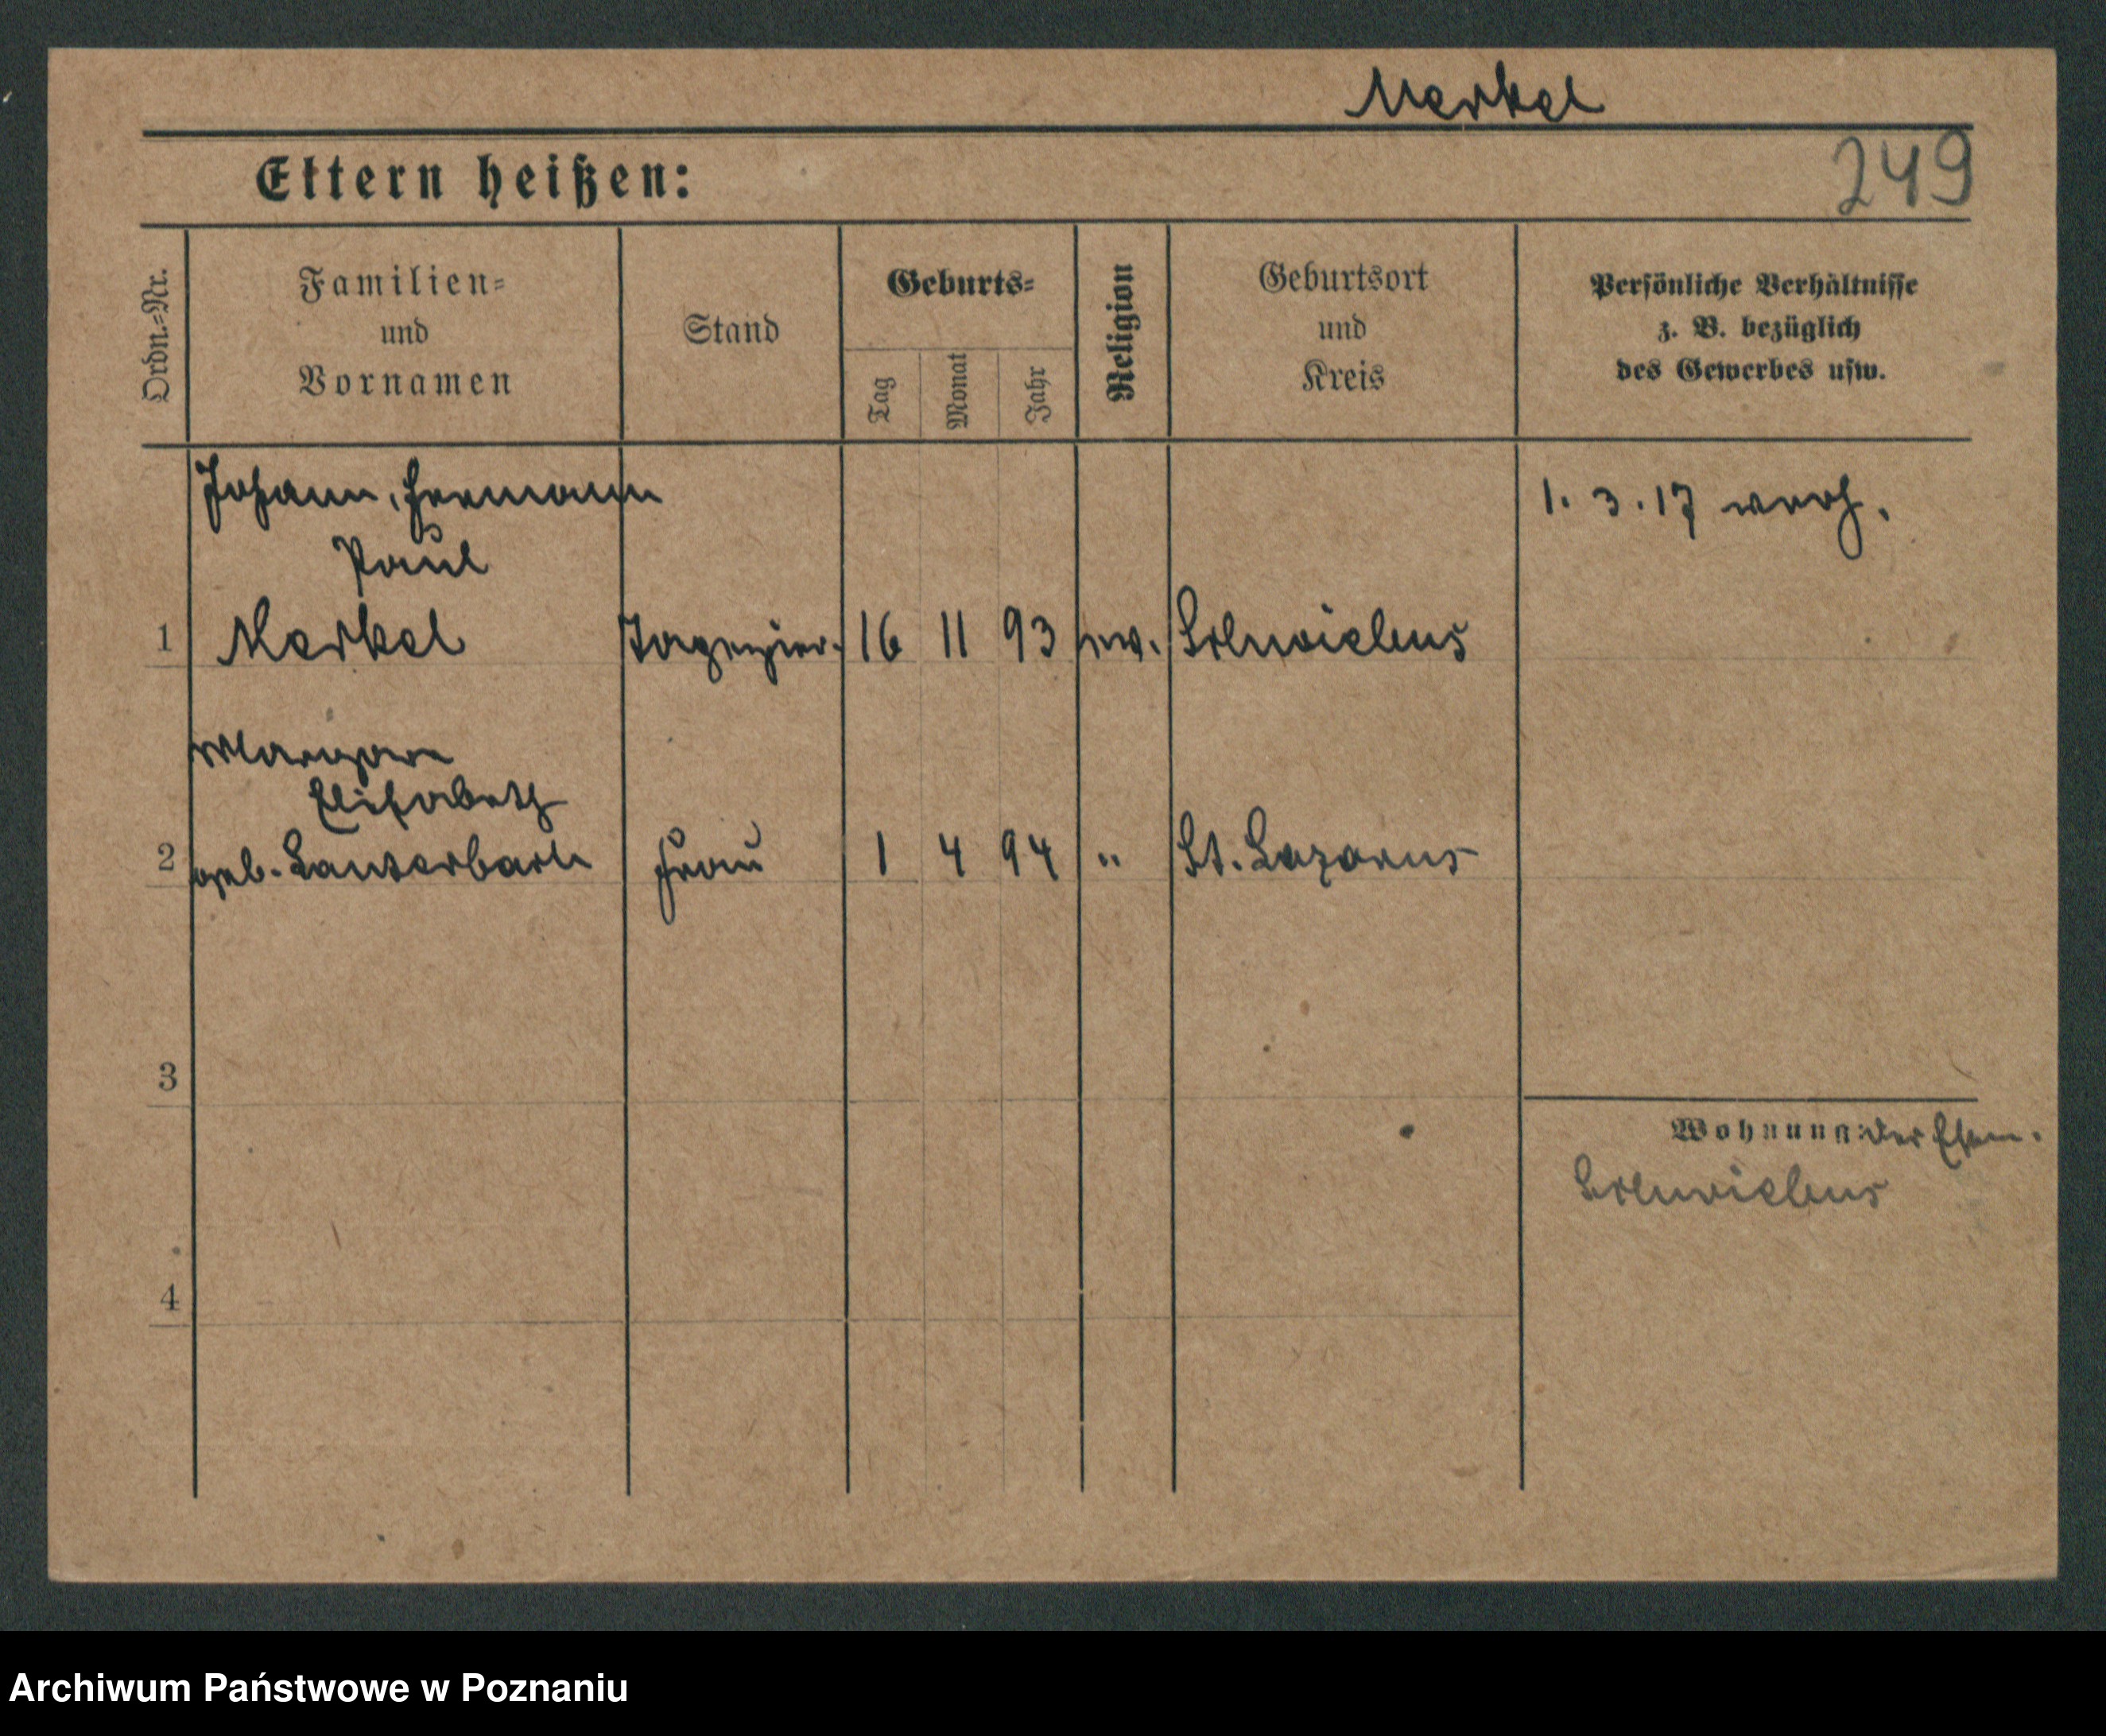 Merkel
Eltern heißen:
249
Ordn.-Nr.
Familien-
und
Vornamen
Stand
Geburts-
Tag
Monat
Jahr
Religion
Geburtsort
und
Kreis
Persönliche Verhältnisse
z. B. bezüglich
des Gewerbes usw.
Johann, Hermann
Paul
1. 3. 17 verh.
1 Merkel 16 11 93 ev.
Elisabeth
2 geb. Lauterbach Frau 1 4 94 " St. Lazarus
3
Wohnung: der
4
Archiwum Państwowe w Poznaniu